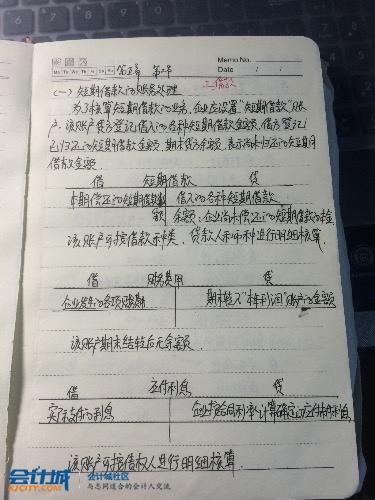 Memo No.
Mo Tu We Th Fr Sa Su
第五章 第二节
Date / /
二、借款
(一) 短期借款的账务处理
为了核算短期借款的业务,企业应设置"短期借款"账
户,该账户贷方登记借入的各种短期借款金额,借方登记
已归还的短期借款金额,期末贷方余额,表示尚未归还的短期
借款金额.
借 短期借款 贷
本期偿还的短期借款 借入的各种短期借款
余额:企业尚未偿还的短期借款
该账户可按借款种类、贷款人和币种进行明细核算.
借 财务费用 贷
企业发生的各项 期末转入"本年利润"账户的金额
该账户期末结转后无余额.
借 应付利息 贷
实际支付的利息 企业按合同利率计算确定的应付未付利息
该账户可按债权人进行明细核算.
会计城
KJCITY.COM
会计城社区
与志同道合的会计人交流